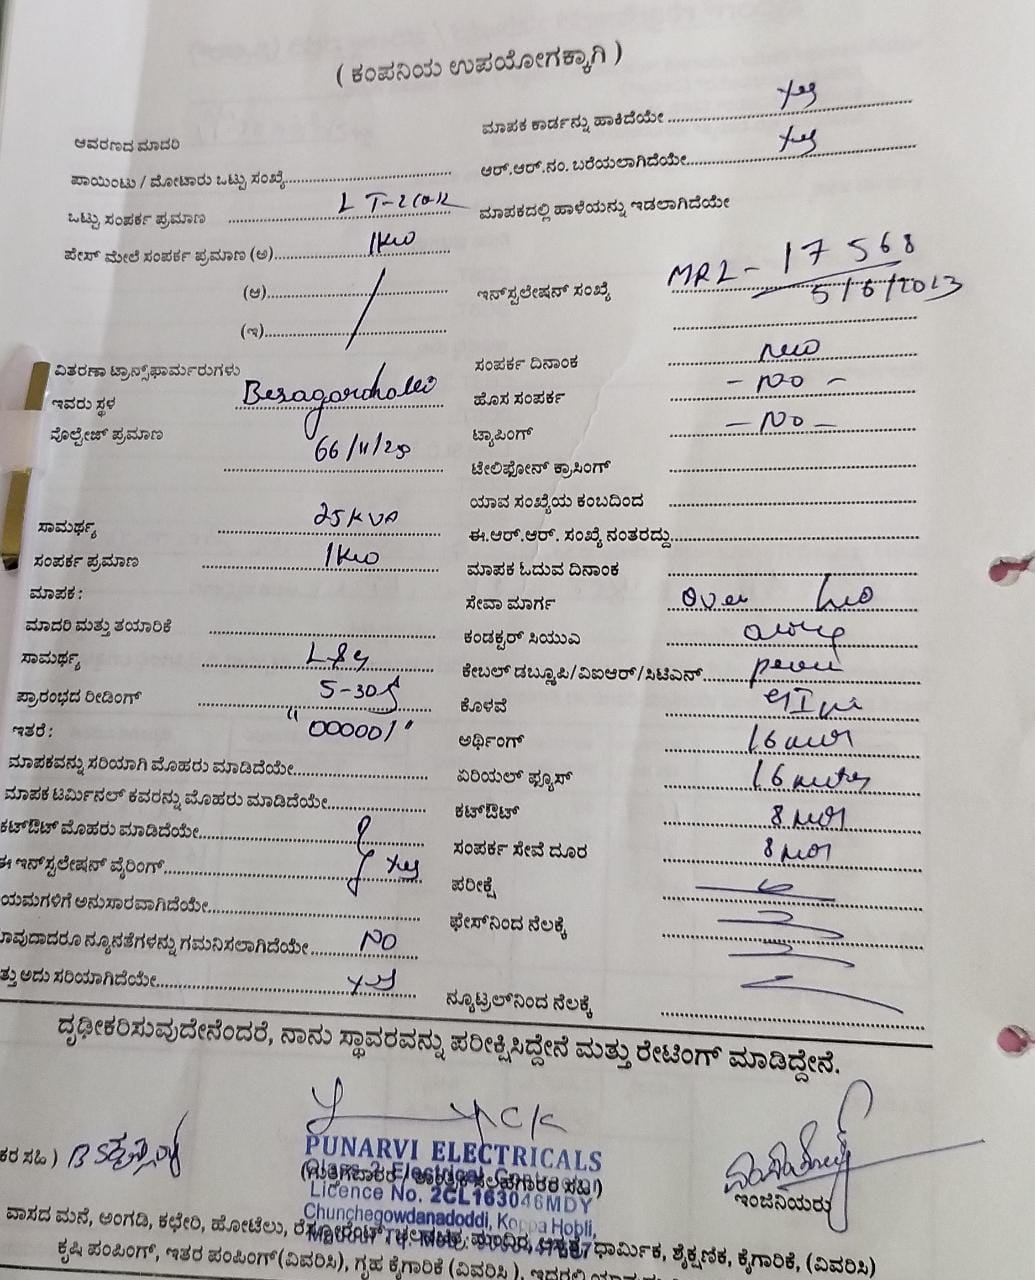 ( ಕಂಪನಿಯ ಉಪಯೋಗಕ್ಕಾಗಿ )
ಆವರಣದ ಮಾದರಿ
ಪಾಯಿಂಟು / ಮೋಟಾರು ಒಟ್ಟು ಸಂಖ್ಯೆ
ಒಟ್ಟು ಸಂಪರ್ಕ ಪ್ರಮಾಣ LT-2
ಪೇಸ್ ಮೇಲೆ ಸಂಪರ್ಕ ಪ್ರಮಾಣ (ಅ) 1kw
(ಆ)
(ಇ)
ವಿತರಣಾ ಟ್ರಾನ್ಸ್‌ಫಾರ್ಮರುಗಳು
ಇವರು ಸ್ಥಳ
ವೊಲ್ಟೇಜ್ ಪ್ರಮಾಣ 66/11/250
ಸಾಮರ್ಥ್ಯ 25KVA
ಸಂಪರ್ಕ ಪ್ರಮಾಣ 1kw
ಮಾಪಕ :
ಮಾದರಿ ಮತ್ತು ತಯಾರಿಕೆ
ಸಾಮರ್ಥ್ಯ L&G
ಪ್ರಾರಂಭದ ರೀಡಿಂಗ್ 5-30A
ಇತರೆ : "000001"
ಮಾಪಕವನ್ನು ಸರಿಯಾಗಿ ಮೊಹರು ಮಾಡಿದೆಯೇ
ಮಾಪಕ ಟರ್ಮಿನಲ್ ಕವರನ್ನು ಮೊಹರು ಮಾಡಿದೆಯೇ
ಕಟ್‌ಔಟ್ ಮೊಹರು ಮಾಡಿದೆಯೇ
ಈ ಇನ್‌ಸ್ಟಲೇಷನ್ ವೈರಿಂಗ್ Yes
ಯಮಗಳಿಗೆ ಅನುಸಾರವಾಗಿದೆಯೇ
ವುದಾದರೂ ನ್ಯೂನತೆಗಳನ್ನು ಗಮನಿಸಲಾಗಿದೆಯೇ NO
ತ್ತು ಅದು ಸರಿಯಾಗಿದೆಯೇ Yes
ಮಾಪಕ ಕಾರ್ಡನ್ನು ಹಾಕಿದೆಯೇ Yes
ಆರ್.ಆರ್.ನಂ. ಬರೆಯಲಾಗಿದೆಯೇ Yes
ಮಾಪಕದಲ್ಲಿ ಹಾಳೆಯನ್ನು ಇಡಲಾಗಿದೆಯೇ
ಇನ್‌ಸ್ಟಲೇಷನ್ ಸಂಖ್ಯೆ MRL-17568
5/6/2013
ಸಂಪರ್ಕ ದಿನಾಂಕ new
ಹೊಸ ಸಂಪರ್ಕ - NO -
ಟ್ಯಾಪಿಂಗ್ - NO -
ಟೇಲಿಫೋನ್ ಕ್ರಾಸಿಂಗ್
ಯಾವ ಸಂಖ್ಯೆಯ ಕಂಬದಿಂದ
ಈ.ಆರ್.ಆರ್. ಸಂಖ್ಯೆ ನಂತರದ್ದು
ಮಾಪಕ ಓದುವ ದಿನಾಂಕ
ಸೇವಾ ಮಾರ್ಗ Over
ಕಂಡಕ್ಟರ್ ಸಿಯುಎ
ಕೇಬಲ್ ಡಬ್ಲ್ಯೂಪಿ/ವಿಐಆರ್/ಸಿಟಿಎನ್
ಕೊಳವೆ
ಅರ್ಥಿಂಗ್
ಏರಿಯಲ್ ಫ್ಯೂಸ್
ಕಟ್‌ಔಟ್
ಸಂಪರ್ಕ ಸೇವೆ ದೂರ
ಪರೀಕ್ಷೆ
ಫೇಸ್‌ನಿಂದ ನೆಲಕ್ಕೆ
ನ್ಯೂಟ್ರಲ್‌ನಿಂದ ನೆಲಕ್ಕೆ
ದೃಢೀಕರಿಸುವುದೇನೆಂದರೆ, ನಾನು ಸ್ಥಾವರವನ್ನು ಪರೀಕ್ಷಿಸಿದ್ದೇನೆ ಮತ್ತು ರೇಟಿಂಗ್ ಮಾಡಿದ್ದೇನೆ.
PUNARVI ELECTRICALS
Class 2 Electrical Contractor
ಕರ ಸಹಿ )
Licence No. 2CL163046MDY
ಇಂಜಿನಿಯರು
Chunchegowdanadoddi, Koppa Hobli,
ವಾಸದ ಮನೆ, ಅಂಗಡಿ, ಕಛೇರಿ, ಹೋಟೆಲು, ಧಾರ್ಮಿಕ, ಶೈಕ್ಷಣಿಕ, ಕೈಗಾರಿಕೆ, (ವಿವರಿಸಿ)
ಕೃಷಿ ಪಂಪಿಂಗ್, ಇತರ ಪಂಪಿಂಗ್ (ವಿವರಿಸಿ), ಗೃಹ ಕೈಗಾರಿಕೆ (ವಿವರಿಸಿ ),